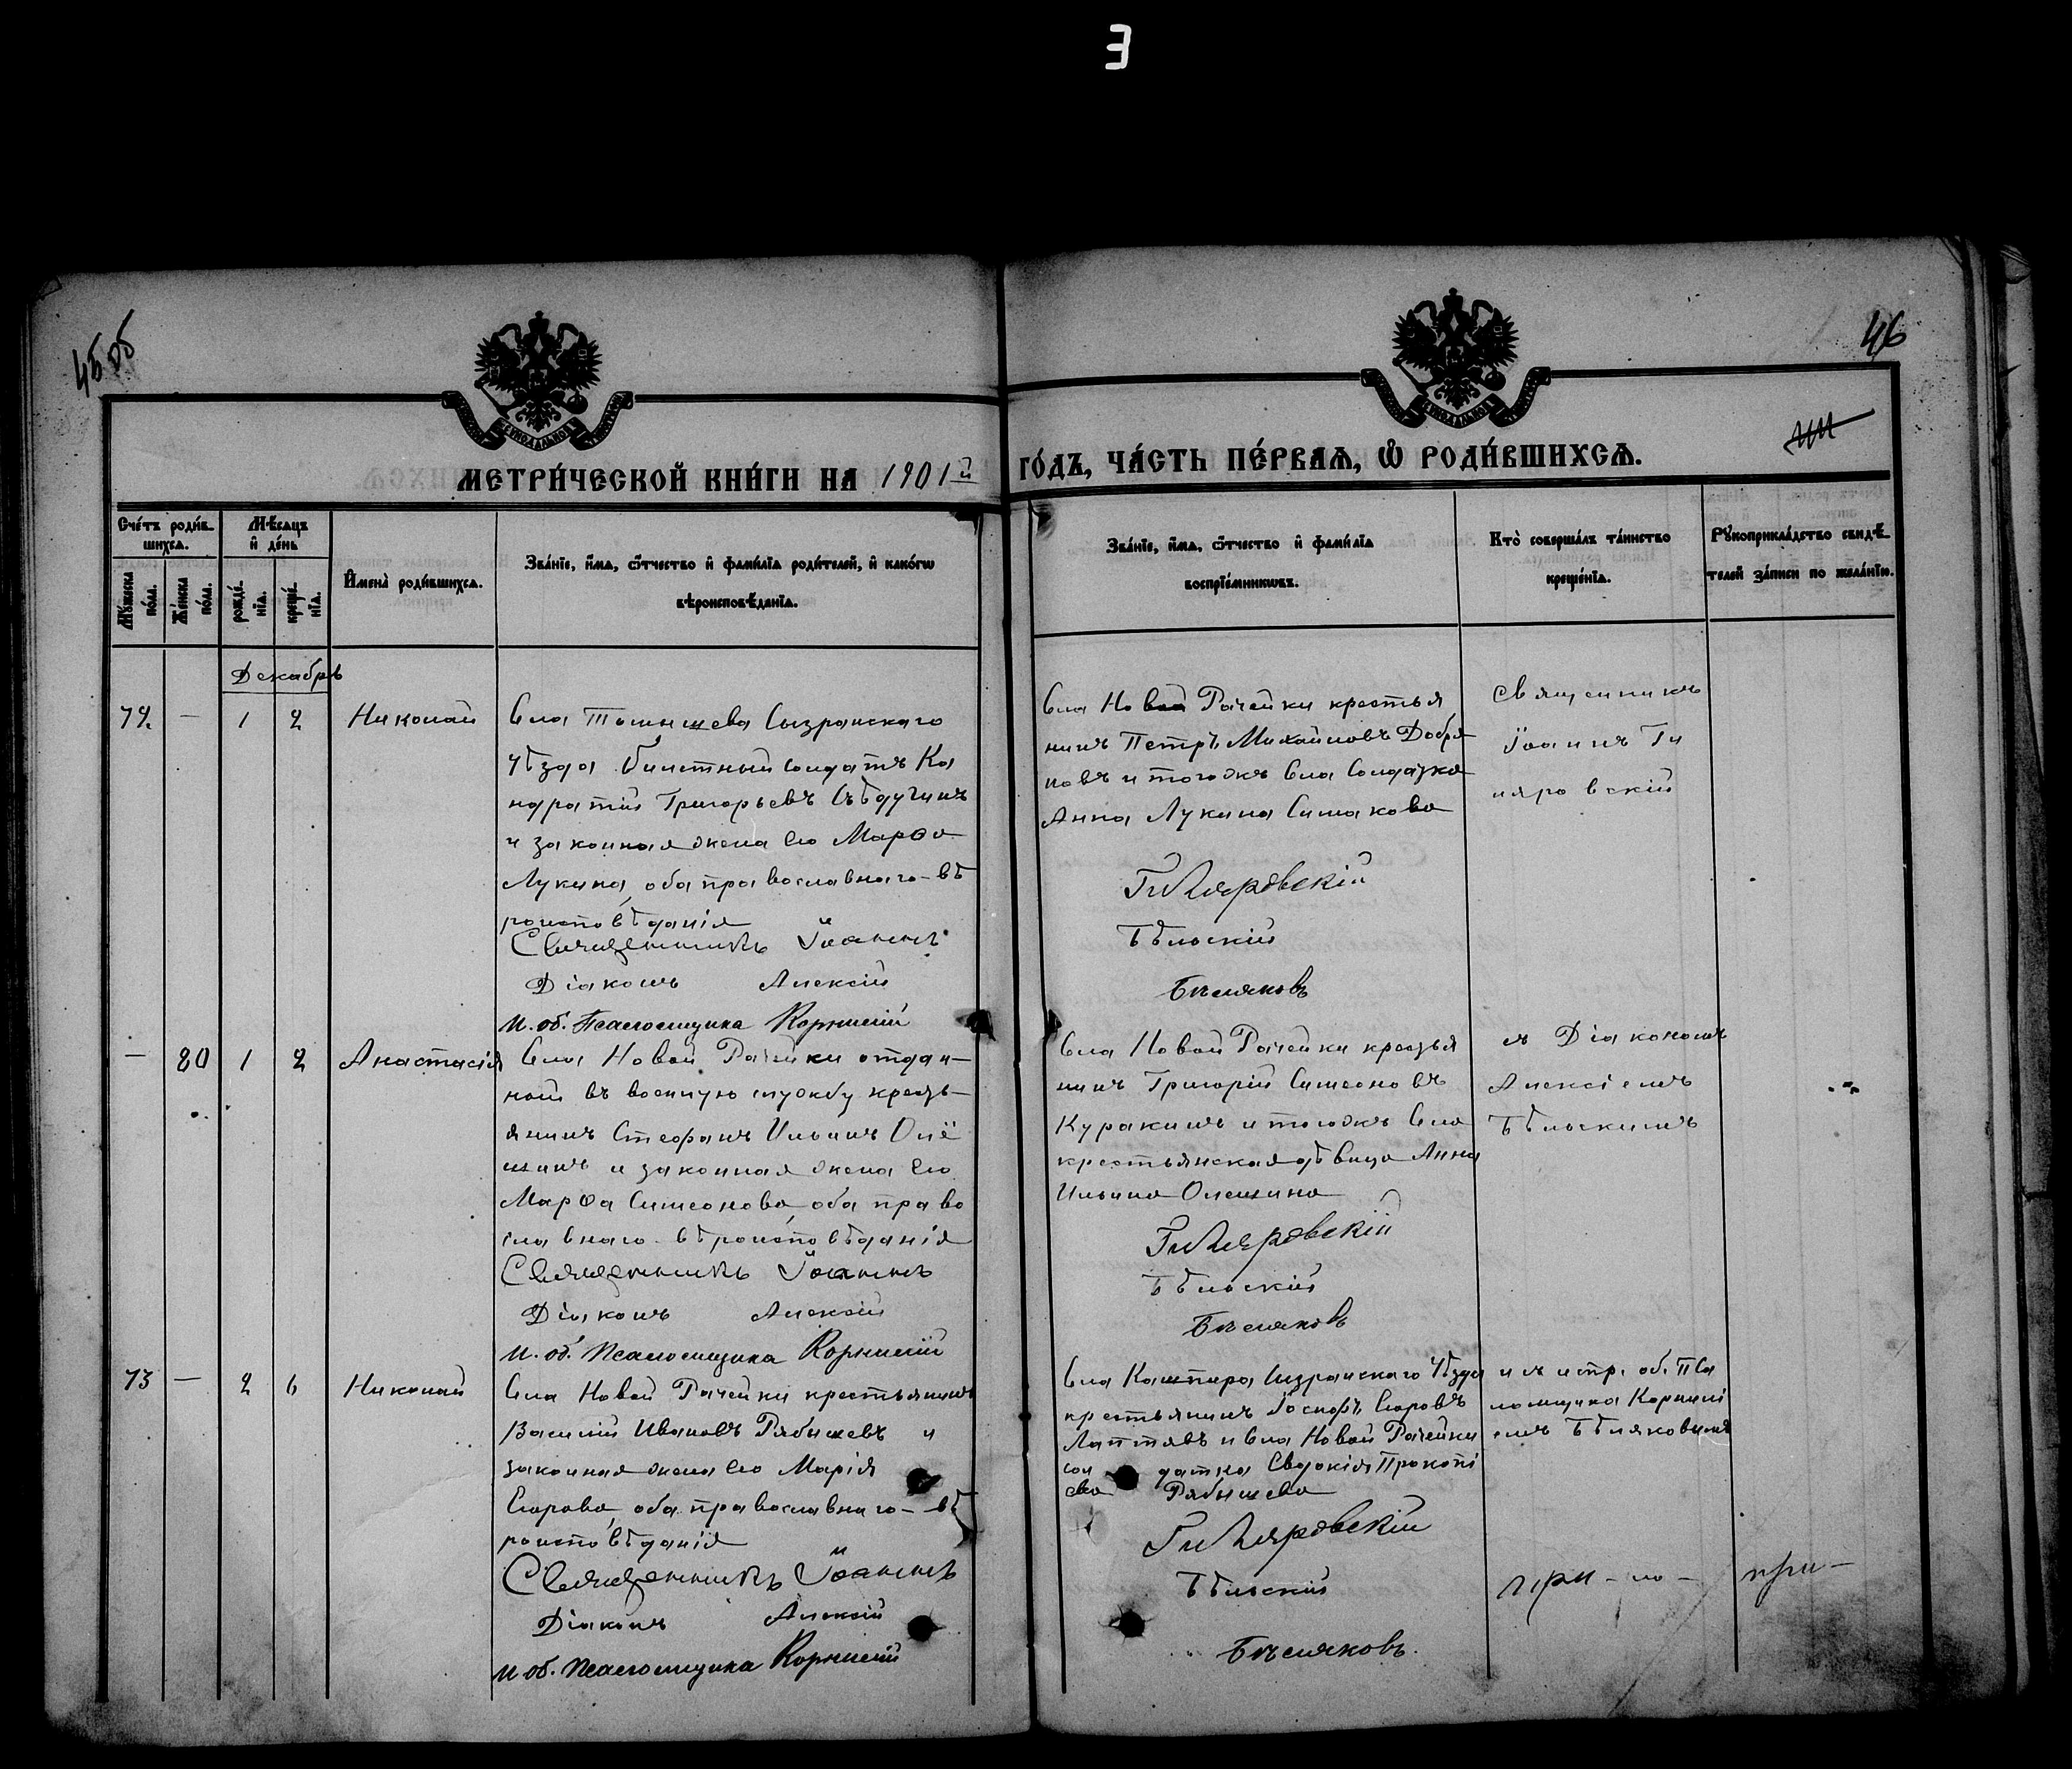 3
45 об
46
МЕТРИ́ЧЕСКОЙ КНИ́ГИ НА 1901 й
ГО́ДЪ, ЧА́СТЬ ПЕ́РВАѦ, Ѡ РОДИ́ВШИХСѦ.
Сче́тъ роди́в-
шихсѧ.
Мꙋ́жеска по́ла.
Же́нска по́ла.
Мѣ́сѧцъ
и҆ де́нь
рожде́-нїѧ.
креще́-нїѧ.
И҆мена̀ роди́вшихсѧ.
Зва́нїе, и҆́мѧ, ѻ҆́тчество и҆ фами́лїѧ роди́телей, и҆ како́гѡ
вѣроисповѣ́данїѧ.
Зва́нїе, и҆́мѧ, ѻ҆́тчество и҆ фами́лїѧ
воспрїе́мникѡвъ.
Кто̀ соверша́лъ та́инство
креще́нїѧ.
Рꙋкоприкла́дство свидѣ́-
телей за́писи по жела́нїю.
Декабрь
72. — 1 2 Николай
Села Томышева Сызранскаго
уѣзда билетный солдатъ Ко
ндратій Григорьевъ Сѣдучинъ
и законная жена его Марѳа
Лукина, оба православнаго вѣ
роисповѣданія
Священникъ Іоаннъ
Діаконъ Алексій
И. об. Псаломщика Корнилій
Села Новой Рачейки крестья
нинъ Петръ Михайловъ Добря
ковъ и тогожъ села солдатка
Анна Лукина Симакова
Гиляровскій
Бѣльскій
Бѣляковъ
Священникъ
Іоаннъ Ги
ляровскій
— 80 1 2 Анастасія
Села Новой Рачейки отдан-
ной въ военную службу кресть-
янинъ Стефанъ Ильинъ Олё
шинъ и законная жена его
Марѳа Симеонова, оба право
славнаго вѣроисповѣданія
Священникъ Іоаннъ
Діаконъ Алексій
И. об. Псаломщика Корнилій
Села Новой Рачейки крестья
нинъ Григорій Симеоновъ
Куракинъ и тогожъ села
крестьянская дѣвица Анна
Ильина Олешина
Гиляровскій
Бѣльскій
Бѣляковъ
съ Діакономъ
Алексіемъ
Бѣльскимъ
73 — 2 6 Николай
Села Новой Рачейки крестьянинъ
Василій Ивановъ Рябышевъ и
законная жена его Марія
Егорова, оба православнаго вѣ
роисповѣданія
Священникъ Іоаннъ
Діаконъ Алексій
И. об. Псаломщика Корнилій
Села Кашпира Сызранскаго уѣзда
крестьянинъ Іосифъ Егоровъ
Лаптявъ и села Новой Рачейки
сол датка Евдокія Прокопі
ева Рябышева
Гиляровскій
Бѣльскій
Бѣляковъ.
и съ испр. об. Пса
ломщика Корнилі
емъ Бѣляковымъ